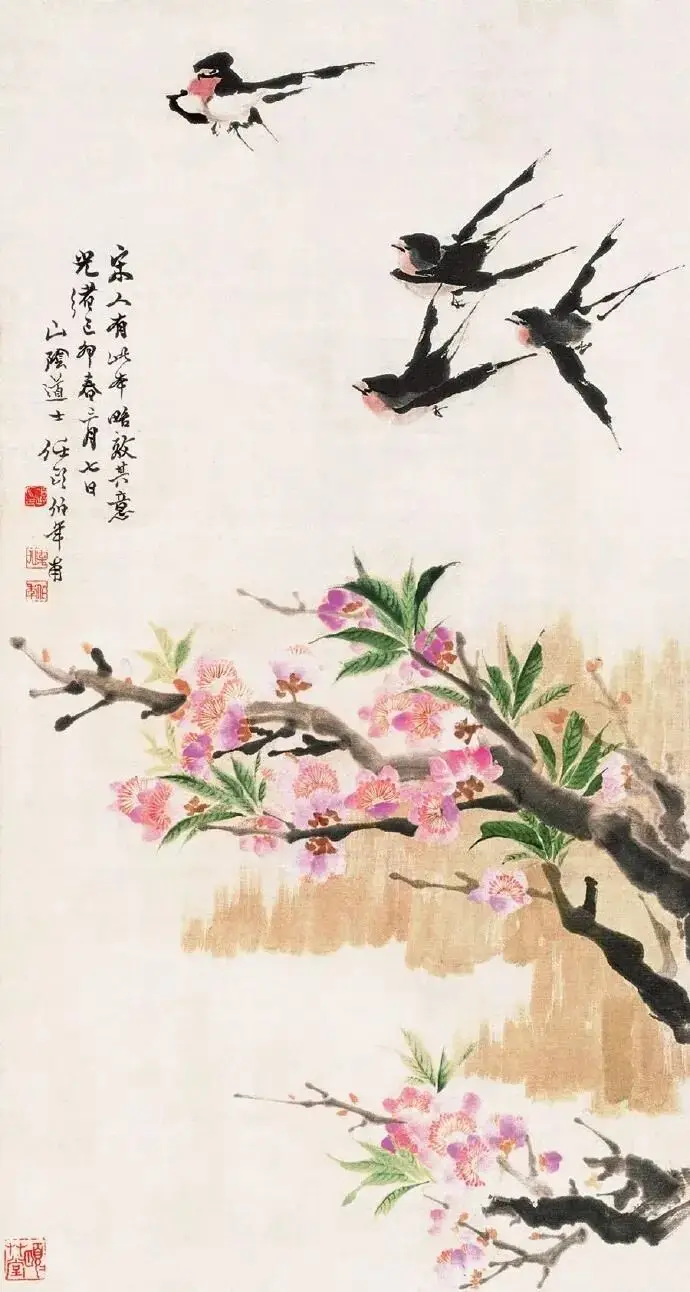 宋人有此本略效其意
光绪己卯春三月七日
山陰道士任頤伯年甫
頤草堂